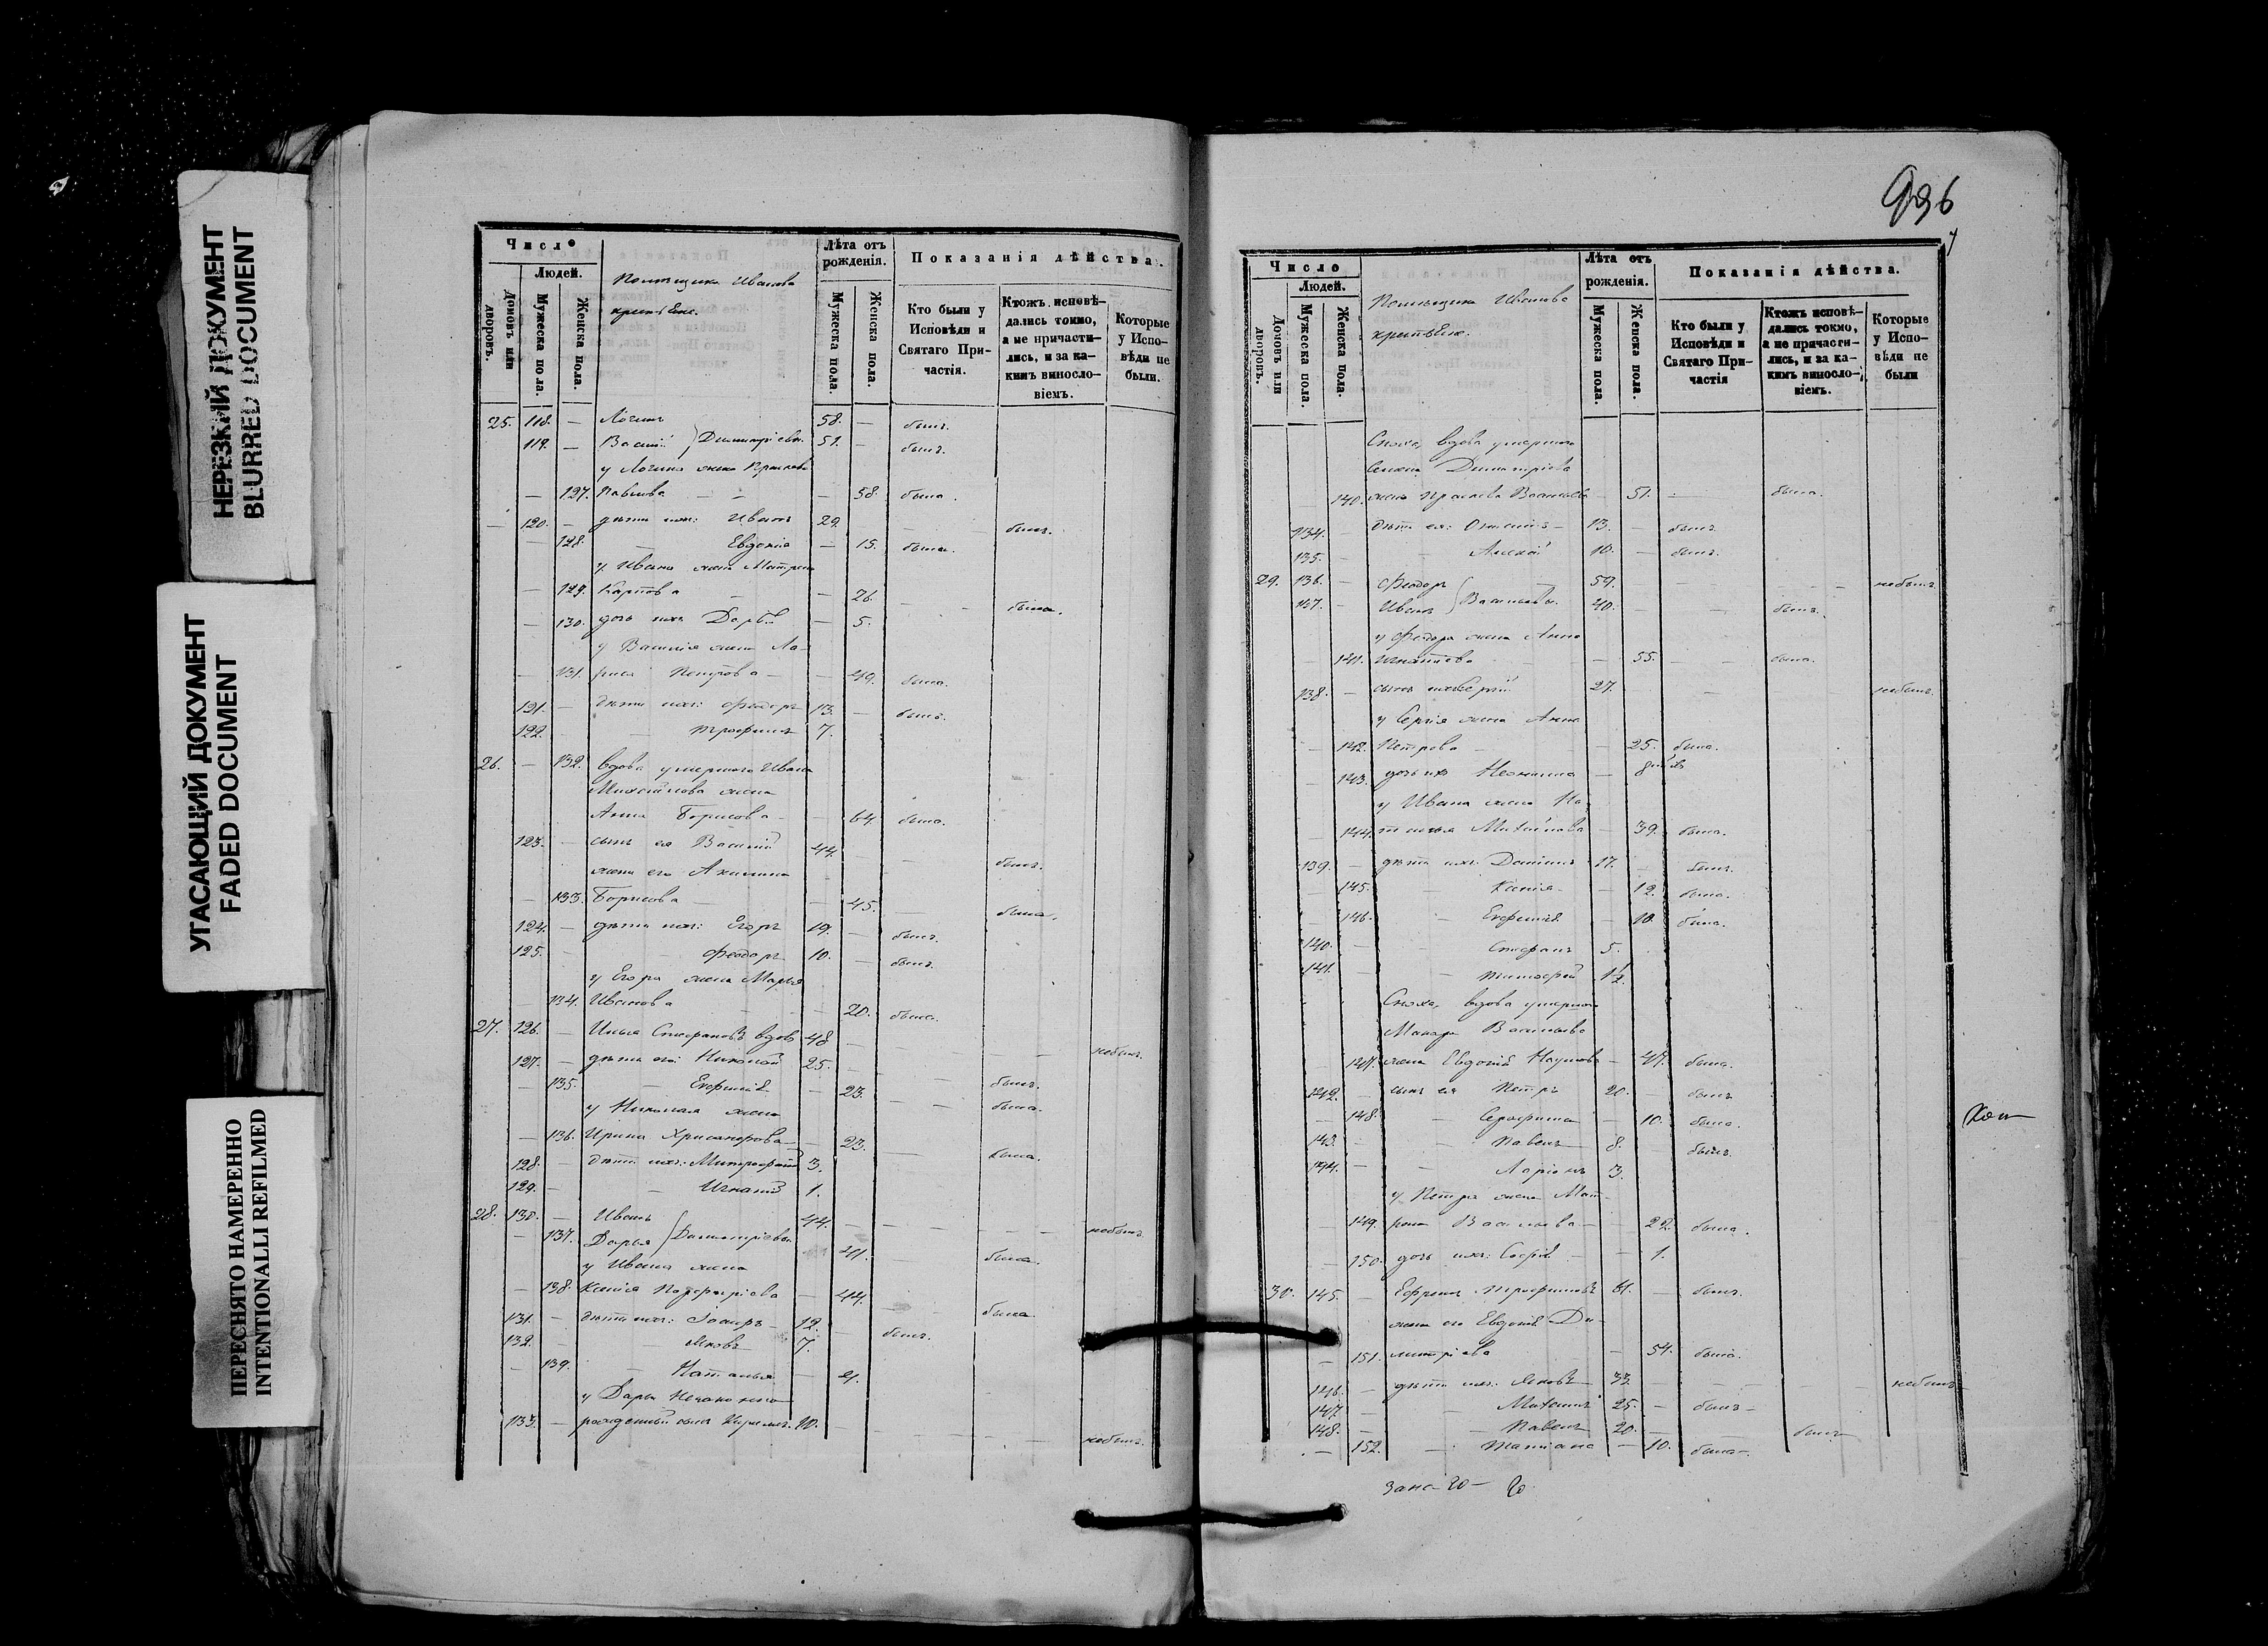 НЕРЕЗКИЙ ДОКУМЕНТ
BLURRED DOCUMENT
УГАСАЮЩИЙ ДОКУМЕНТ
FADED DOCUMENT
ПЕРЕСНЯТО НАМЕРЕННО
INTENTIONALLI REFILMED
Число
Людей.
Домовъ или дворовъ.
Мужеска пола.
Женска пола.
Помѣщика Иванова
крестьяне.
Лѣта отъ рожденія.
Мужеска пола.
Женска пола.
Показанія дѣйства.
Кто были у Исповѣди и Святаго При-частія.
Ктожъ исповѣ-дались токмо, а не причасти-лись, и за ка-кимъ виносло-віемъ.
Которые у Испо-вѣди не были.
25. 118. — Логинъ 58. — былъ.
119. — Василій } Димитріевы 51. — былъ.
у Логина жена
— 127. Павлова — — — 58. была.
— 120. — дѣти ихъ: Иванъ 29. былъ.
— 128. — Евдокія — 15. была.
у Ивана жена Матрена
— 129. Карпова — — 26. — — была.
— 130. дочь ихъ Дарья — 5.
у Василія жена Ла-
— 131. риса Петрова — — 49. была.
121. — дѣти ихъ: Феодоръ 13. — былъ.
122. — — Трофимъ 7.
26. — 132. вдова умершаго Ивана
Михайлова жена
Анна Борисова — — 64. была.
123. — сынъ ея Василій 44. былъ.
жена его Акилина
— 133. Борисова — — 45. — была.
124. — дѣти ихъ: Егоръ 19. — былъ.
125. — — Феодоръ 10. — былъ.
у Егора жена Марья
— 134. Иванова — — 20. была.
27. 126. — Илья Стефановъ вдовъ 48 — — — — небылъ.
127. — дѣти его: Николай 25. — — былъ.
— 135. — Евфимія — 23. — — была.
у Николая жена
— 136. Ирина Хрисанфова — — 23. — была.
128. — дѣти ихъ: Митрофанъ 3.
129. — — Игнатій 1.
28. 130. — Иванъ 44. — — — — небылъ.
— 137. Дарья } Димитріевы 41. — была.
у Ивана жена
— 138. Ксенія Порфиріева — 44. — была.
131. — дѣти ихъ: 12. — былъ.
132. — — Яковъ 7.
— 139. — Наталья — 4.
у Дарьи незаконно
133. — рожденный сынъ 10. — — — — небылъ.
936
7
Число
Людей.
Домовъ или дворовъ.
Мужеска пола.
Женска пола.
Помѣщика Иванова
крестьяне.
Лѣта отъ рожденія.
Мужеска пола.
Женска пола.
Показанія дѣйства.
Кто были у Исповѣди и Святаго При-частія
Ктожъ исповѣ-дались токмо, а не причасти-лись, и за ка-кимъ виносло-віемъ.
Которые у Испо-вѣди не были
Сноха, вдова умершаго
Димитріева
140. жена Васильева — 51. — была.
134. — дѣти ея: 13. — былъ.
135. — Алексѣй 10. — былъ.
29. 136. — Феодоръ 59. — — — небылъ.
137. — Иванъ } Васильевы 40. — — былъ.
у Феодора жена Анна
— 141. Игнатіева — — 55. — — была.
138. — сынъ ихъ Сергій 27. — небылъ.
у Сергія жена Анна
— 142. Петрова — — 25. была.
— 143. дочь ихъ Неонилла — 8
у Ивана жена На-
— 144. талья Михайлова — 39. была.
139. — дѣти ихъ: Даніилъ 17. — былъ.
— 145. — Ксенія — 12. была.
— 146. — Евфимія — 10. была.
140. — — Стефанъ 5.
141. — — Тимофей 1½.
Сноха, вдова умершаго
Макара Васильева
— 147. жена Евдокія Наумова — 47. была.
142. — сынъ ея Петръ 20. — былъ
— 148. — Серафима — 10. была.
143. — — Павелъ 8. — былъ.
144. — — Ларіонъ 3.
у Петра жена Мат-
— 149. рона Васильева — — 22. была.
— 150. дочь ихъ: Софія — — 1.
30. 145. — Ефремъ Трофимовъ 61. — былъ.
жена его Евдокія Ди-
— 151. митріева — 54. была.
146. — дѣти ихъ: Яковъ 33. — — — небылъ
147. — — Михаилъ 25. — былъ —
148. — — Павелъ 20. — — былъ
— 152. — Татіана — 10. была —